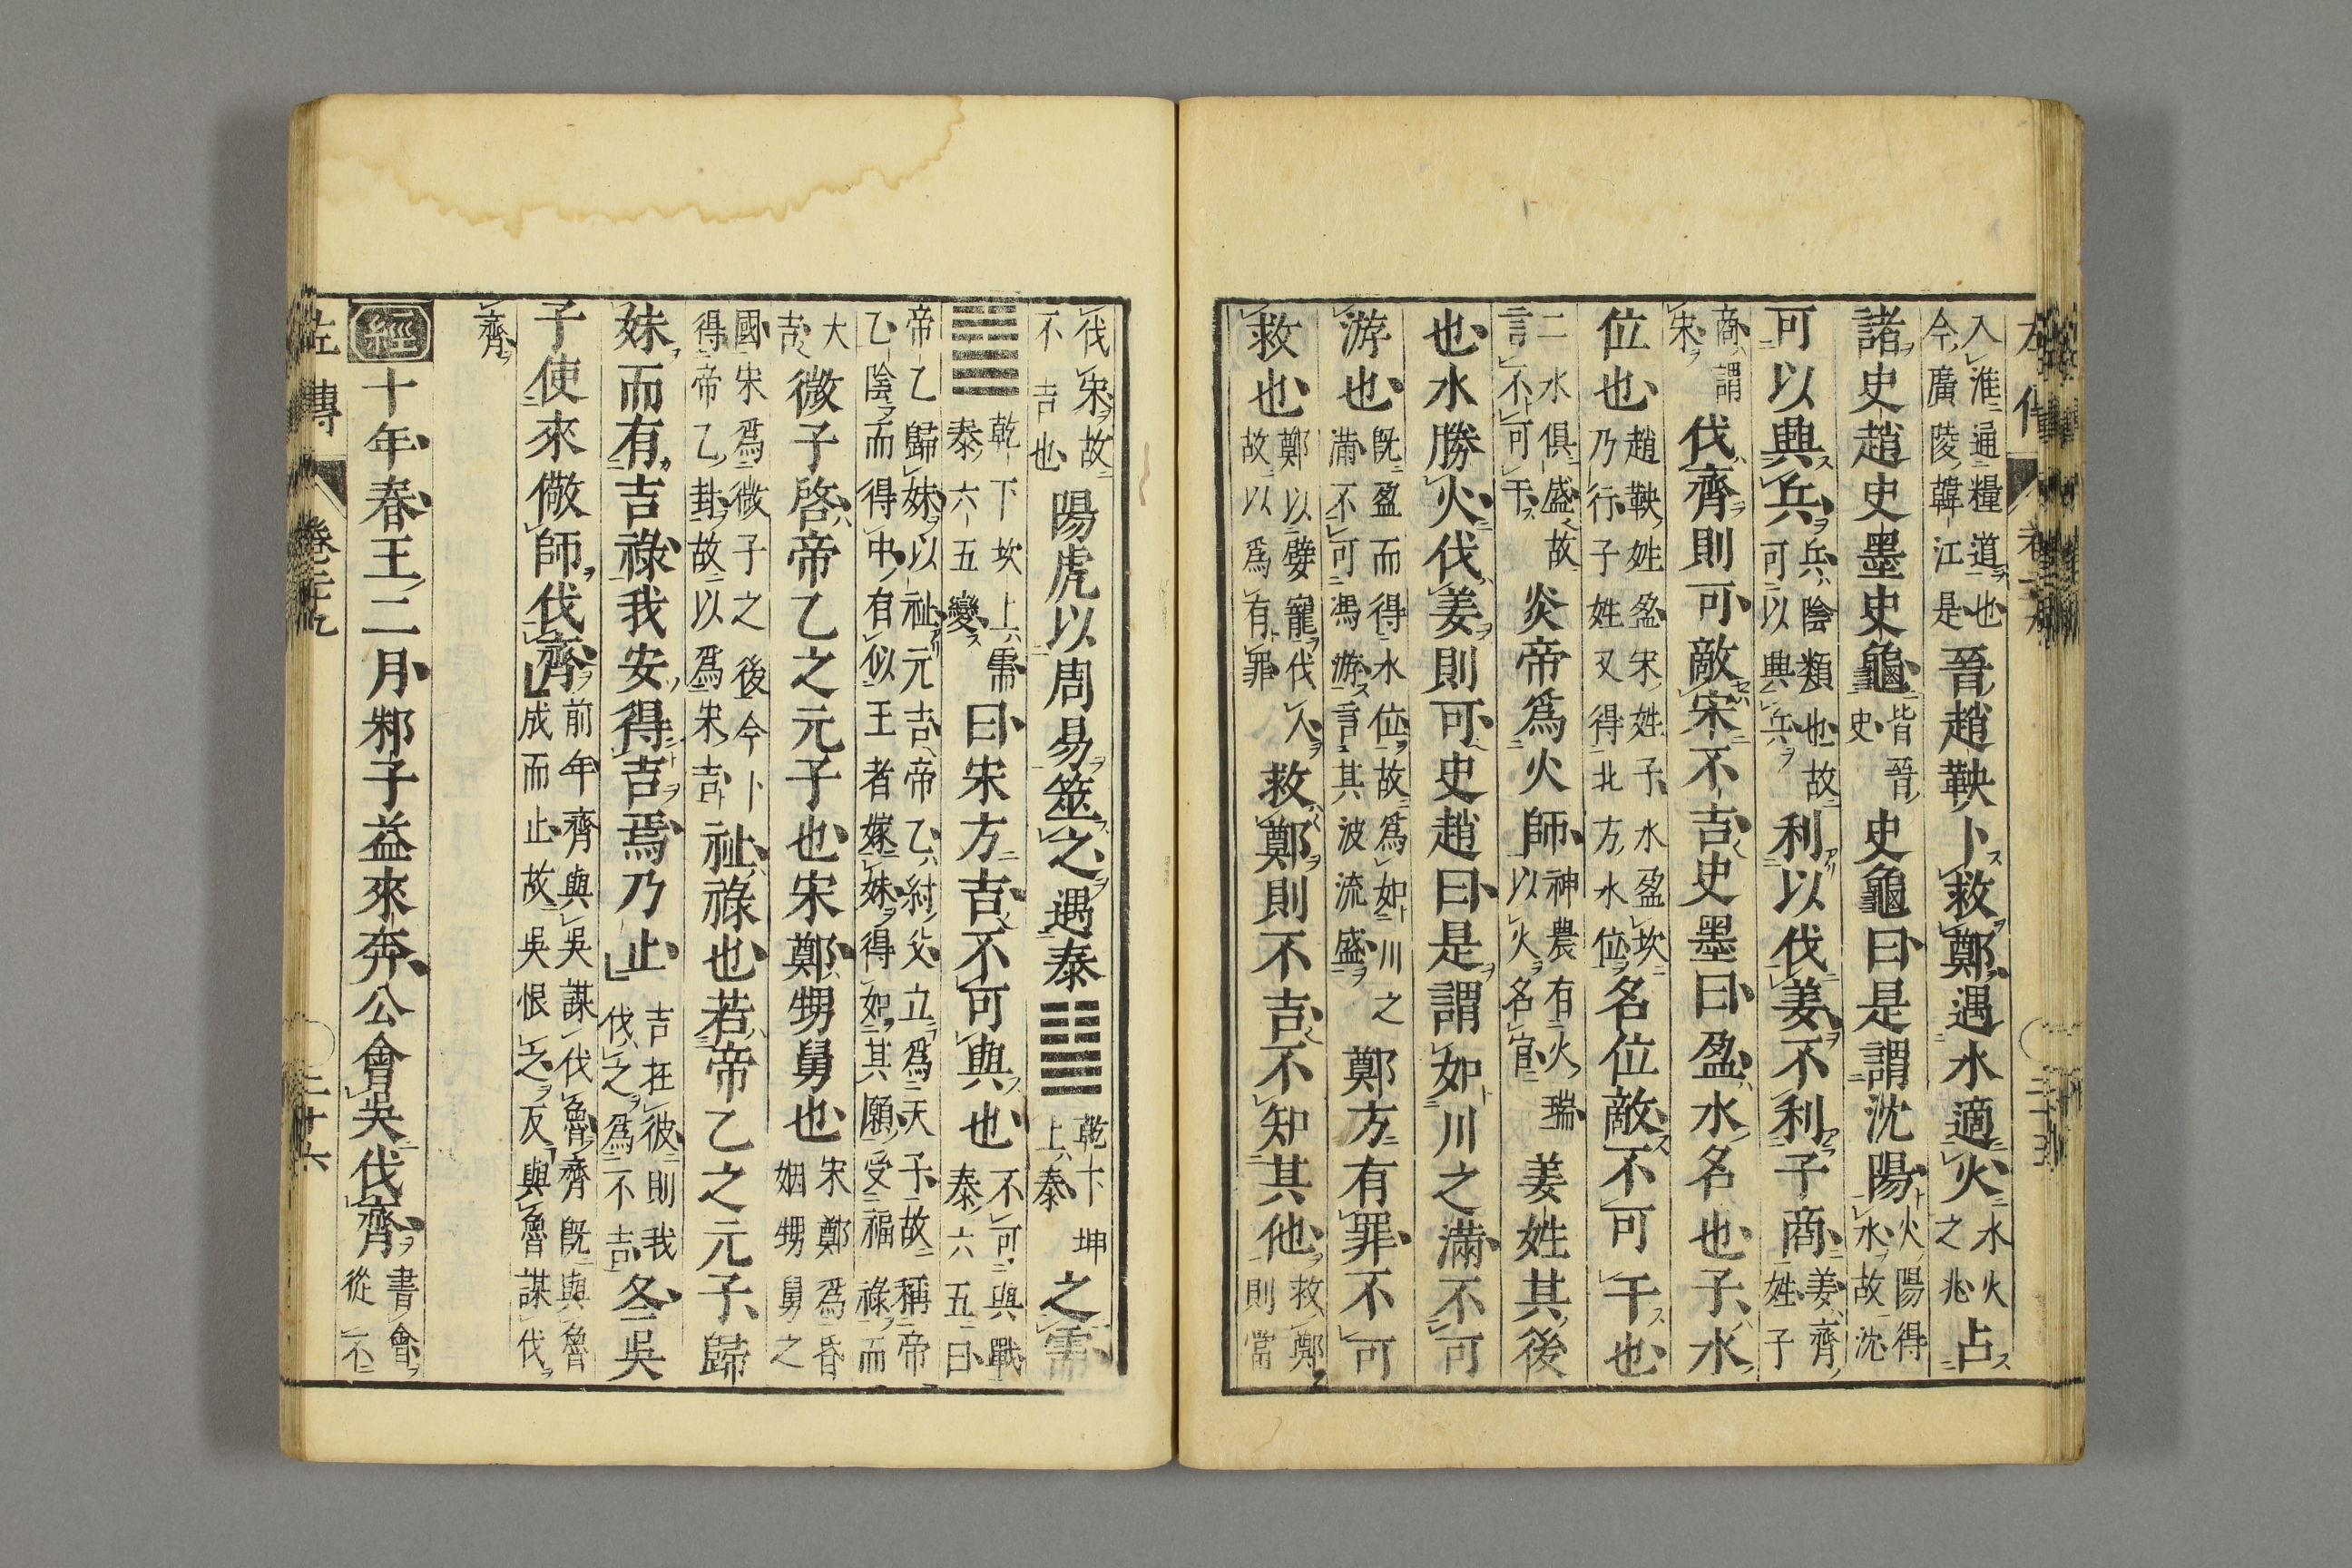 入淮通糧道也今廣陵韓江是晉趙鞅卜救鄭遇水適火水火之兆占
諸史趙史墨史龜皆晉史史龜曰是謂沈陽火陽得水故沈
可以興兵兵陰類也故可以興兵利以伐姜不利子商姜齊姓子
商謂宋伐齊則可敵宋不吉史墨曰盈水名也子水
位也趙鞅姓盈宋姓子水盈坎乃行子姓又得北方水位名位敵不可干也
二水俱盛故言不可干炎帝爲火師神農有火瑞以火名官姜姓其後
也水勝火伐姜則可史趙曰是謂如川之滿不可
游也既盈而得水位故爲如川之滿不可馮游言其波流盛鄭方有罪不可
救也鄭以嬖寵伐人故以爲有罪救鄭則不吉不知其他救鄭則當
伐宋故不吉也陽虎以周易筮之遇泰䷊乾下坤上泰之需
䷄乾下坎上需泰六五變曰宋方吉不可與也不可與戰泰六五曰
帝乙歸妹以祉元吉帝乙紂父立爲天子故稱帝乙陰而得中有似王者嫁妹得如其願受福祿而
大吉微子啓帝乙之元子也宋鄭甥舅也宋鄭爲昏姻甥舅之
國宋爲微子之後今卜得帝乙卦故以爲宋吉祉祿也若帝乙之元子歸
妹而有吉祿我安得吉焉乃止吉在彼則我伐之爲不吉冬吳
子使來儆師伐齊前年齊與吳謀伐魯齊既與魯成而止故吳恨之反與魯謀伐
齊
經十年春王二月邾子益來奔公會吳伐齊書會從不
左傳 卷二十九 三十六